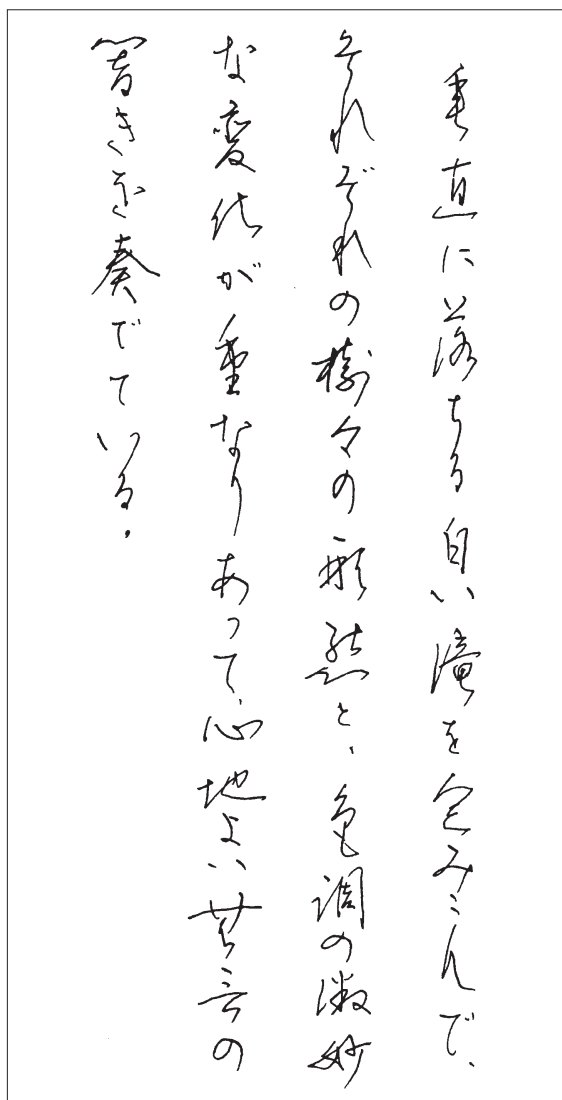 垂直に落ちる白い滝を包みこんで、
それぞれの樹々の形態と、色調の微妙
な変化が重なりあって、心地よい無音の
響きを奏でている。